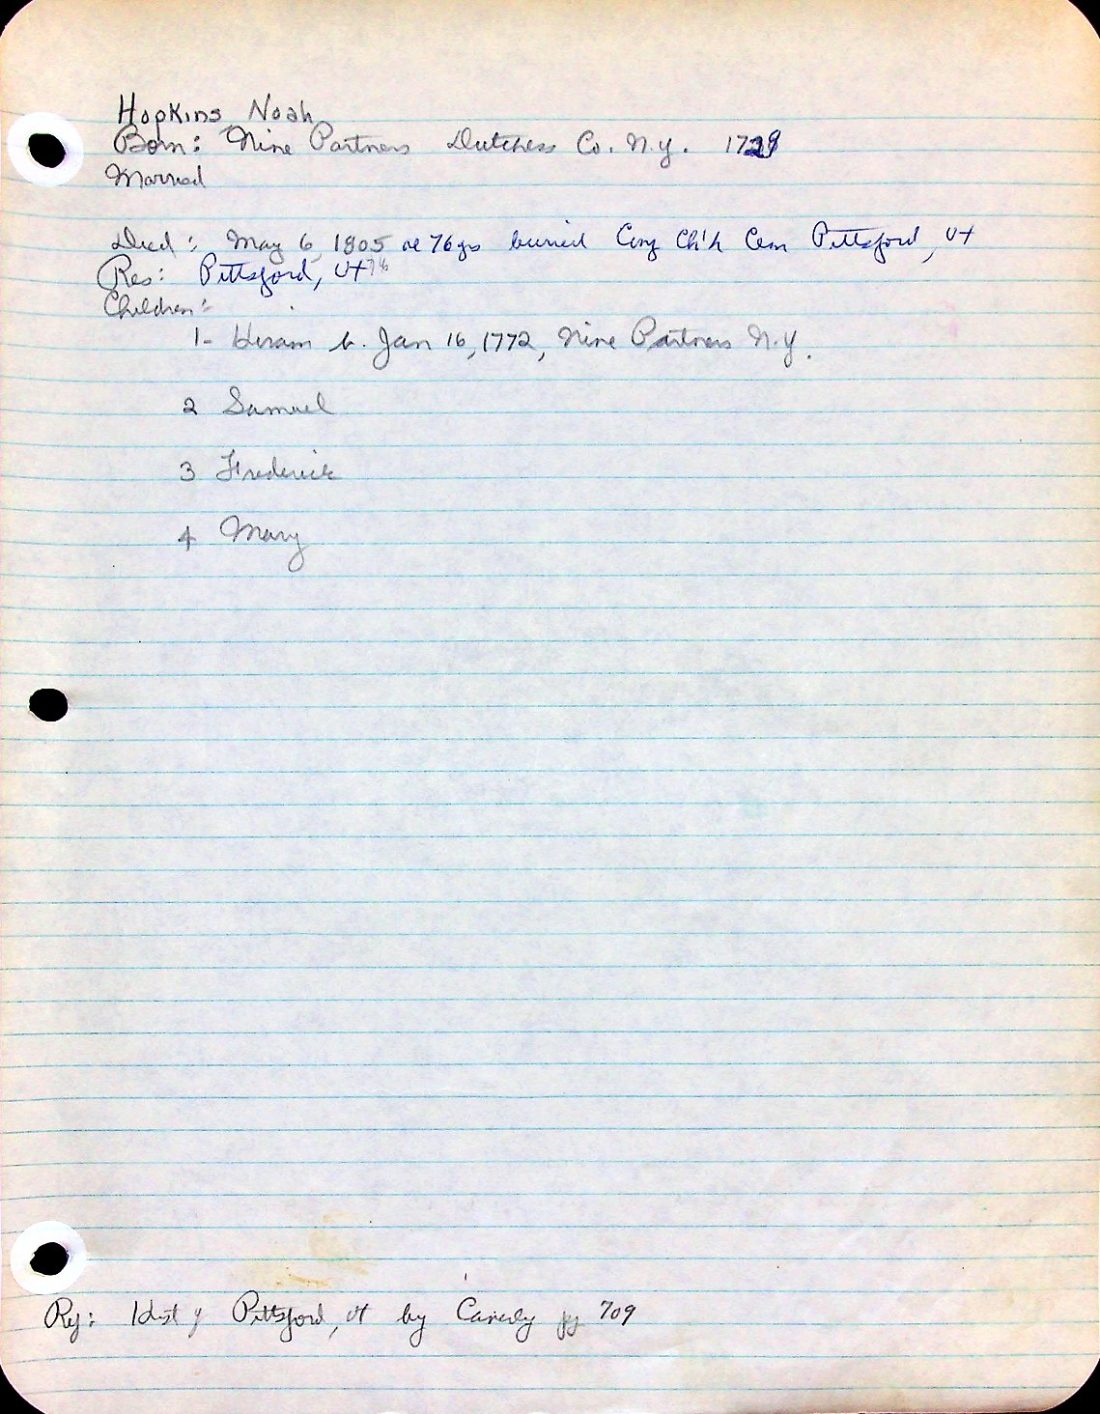 Hopkins, Noah
Born: Nine Partners Dutchess Co. N.Y. 1729
Married
Died: May 6, 1805 ae 76 ys buried Cong Ch'h Cem Pittsford, Vt
Res: Pittsford, Vt 76
Children:
1- Hiram b. Jan 16, 1772, Nine Partners N.Y.
2 Samuel
3 Frederick
4 Mary
Ref: Hist of Pittsford, Vt by Caverly pg 709